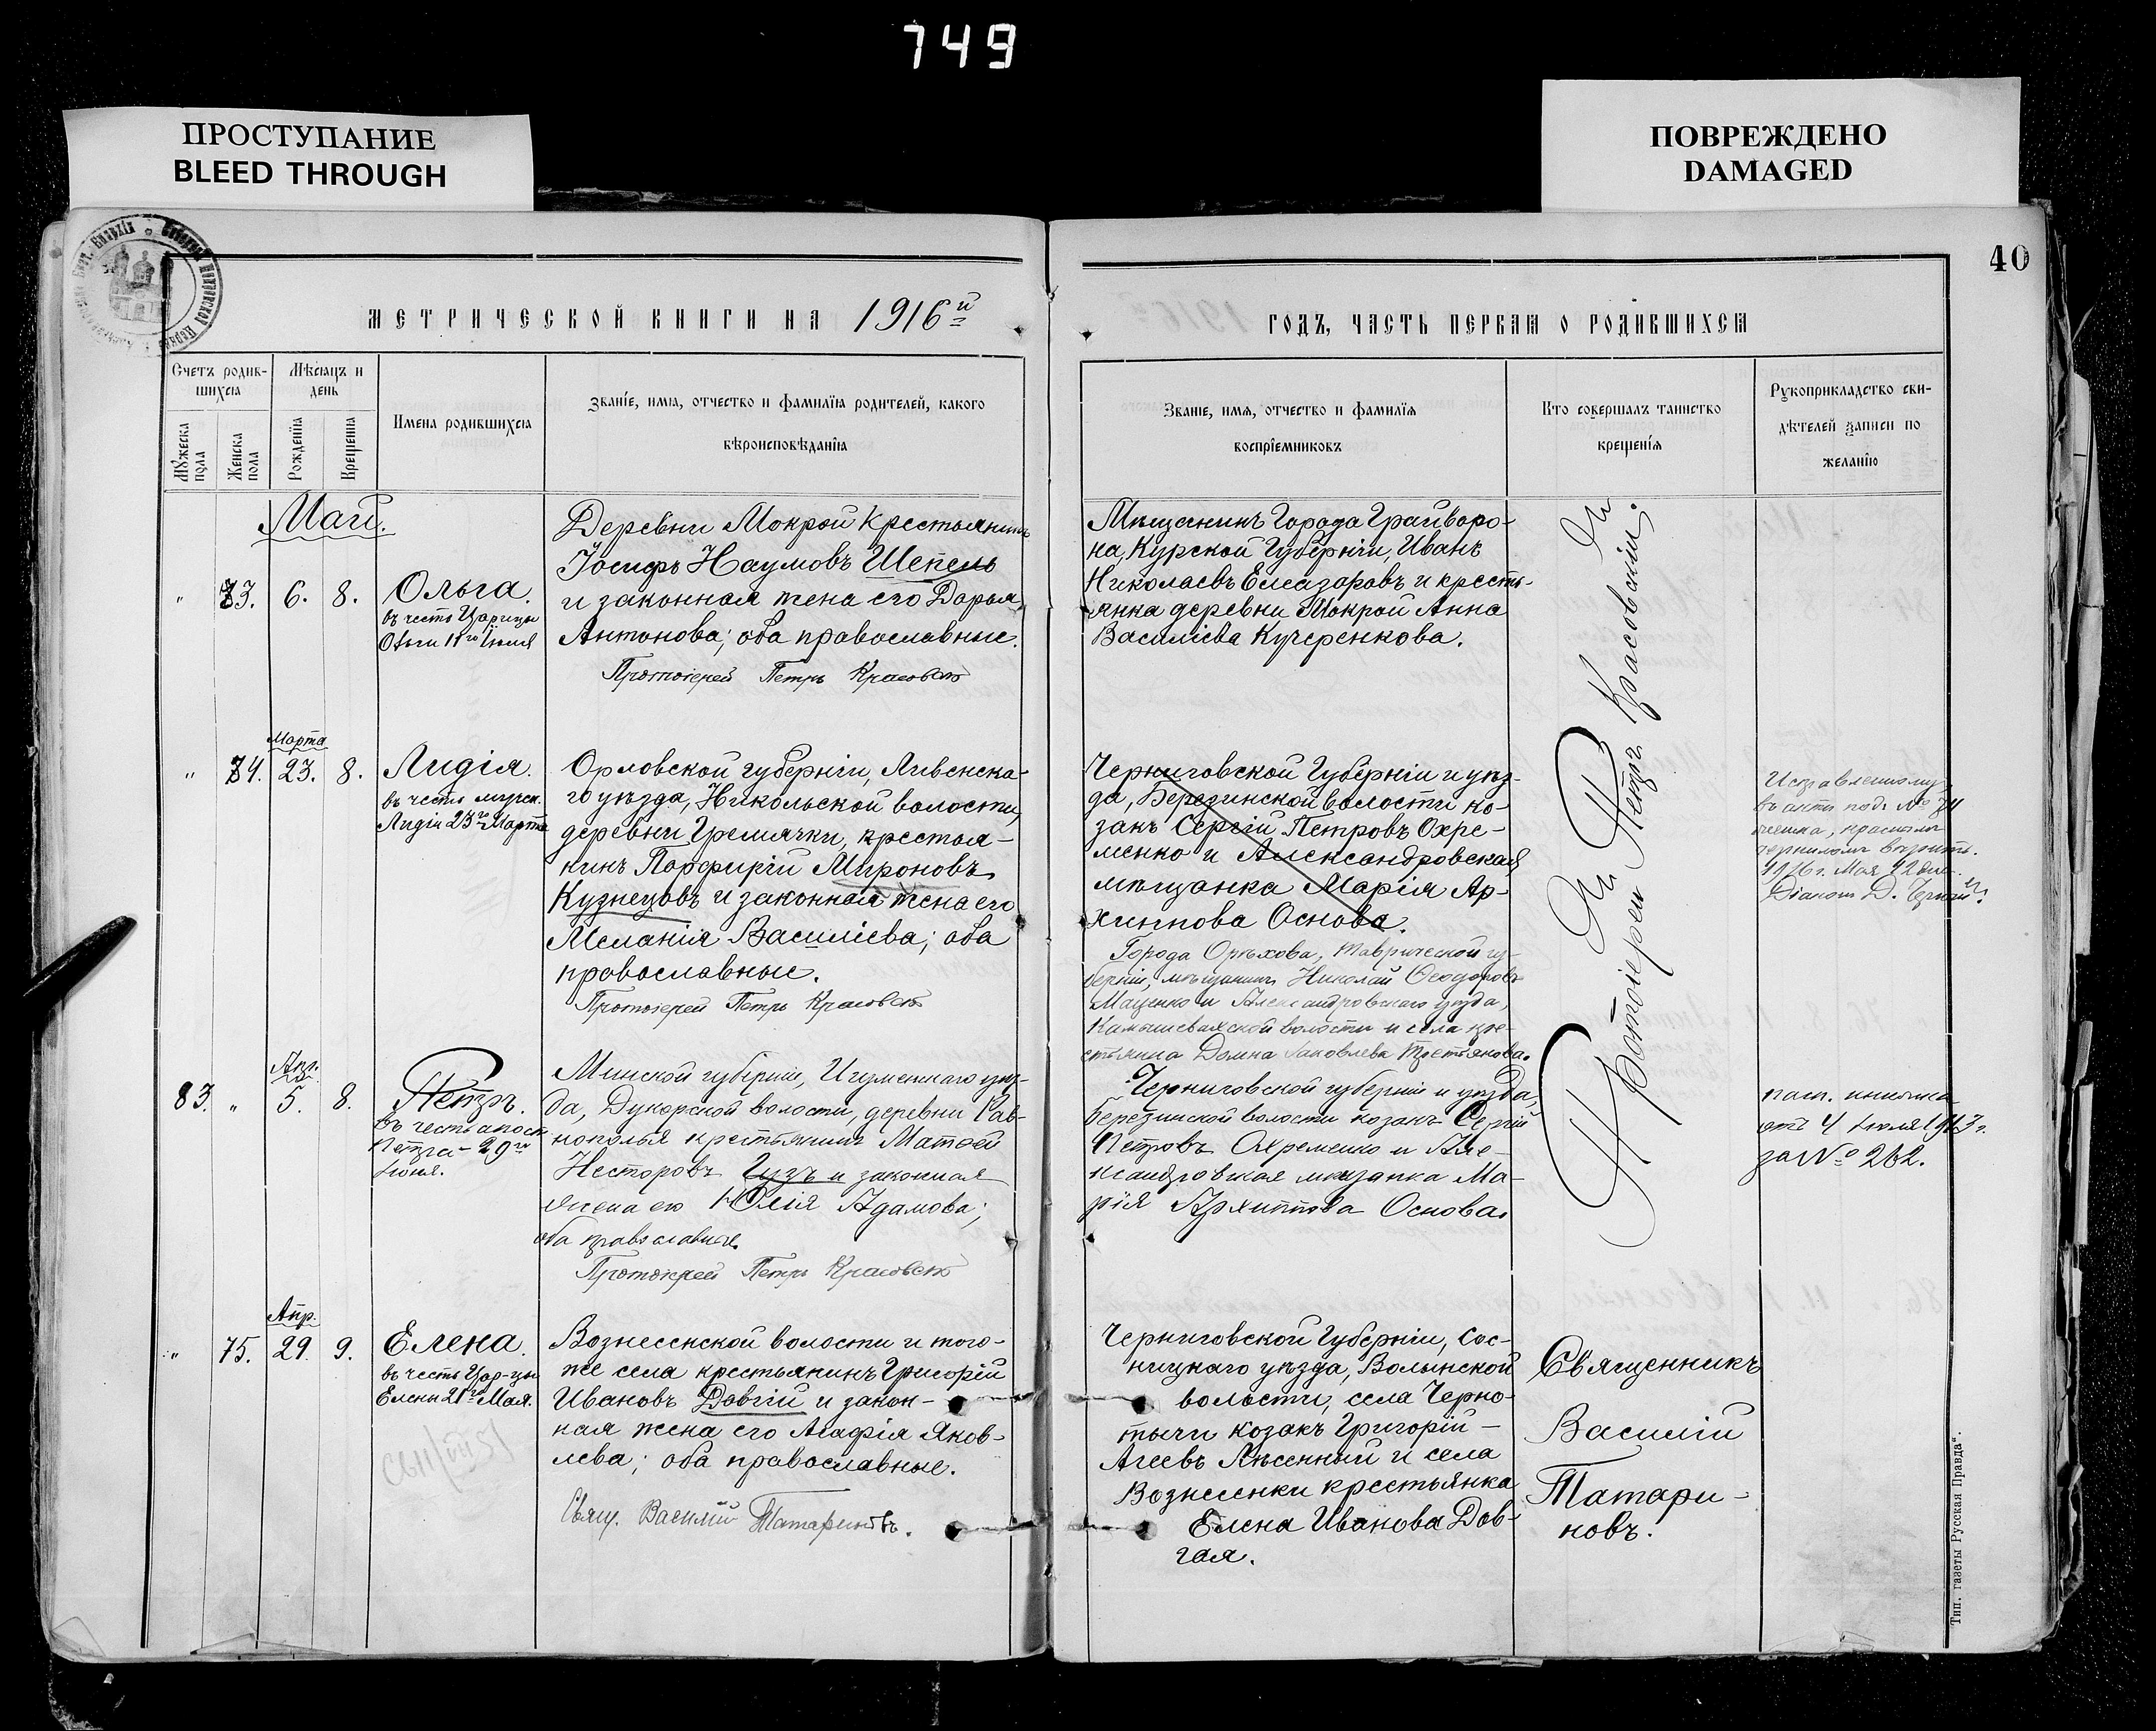 749
ПРОСТУПАНИЕ
BLEED THROUGH
ПОВРЕЖДЕНО
DAMAGED
40
МЕТРИЧЕСКОЙ КНИГИ НА 1916й
ГОДЪ, ЧАСТЬ ПЕРВАЯ О РОДИВШИХСЯ
Счетъ родив-
шихся
Мѣсяцъ и
день
Мужеска
пола
Женска
пола
Рожденїя
Крещенїя
Имена родившихся
Званїе, имя, отчество и фамилїя родителей, какого
вѣроисповѣданїя
Званіе, имя, отчество и фамилїя
воспрїемниковъ
Кто совершалъ таинство
крещенїя
Рукоприкладство сви-
дѣтелей записи по
желанїю
Май.
" 73. 6. 8.
Ольга.
въ честь Царицы
Ольги 11го Іюля
Деревни Мокрой крестьянинъ
Іосифъ Наумовъ Шепель
и законная жена его Дарья
Антонова; оба православные.
Протоіерей Петръ Красовскій
Мѣщанинъ Города Грайворо-
на, Курской Губерніи, Иванъ
Николаевъ Елеазаровъ и кресть-
янка деревни Мокрой Анна
Василіева Кучеренкова.
Протоіерей Петръ Красовскій.
Марта
" 74. 23. 8.
Лидія.
въ честь мучен.
Лидіи 23го Марта
Орловской губерніи, Ливенска-
го уѣзда, Никольской волости,
деревни Гремячки, крестья-
нинъ Порфирій Мироновъ
Кузнецовъ и законная жена его
Меланія Василіева; оба
православные.
Протоіерей Петръ Красовскій
Черниговской Губерніи и уѣз-
да, Березинской волости ко-
закъ Сергій Петровъ Охре-
менко и Александровская
мѣщанка Марія Ар-
хиппова Основа.
Города Орѣхова, Таврической гу-
берніи, мѣщанинъ Николай Ѳеодоровъ
Маценко и Александровскаго уѣзда,
Камышевахской волости и села кре-
стьянка Домна Іаковлева Третьякова.
въ актѣ подъ № 74
1916 г. Мая 12 дня.
Діаконъ Д.
Апр.
83. " 5. 8.
Петръ.
Въ честь апост.
Петра - 29го
Іюня.
Минской губерніи, Игуменскаго уѣз-
да, Дукорской волости, деревни Рав-
нополья крестьянинъ Матѳей
Несторовъ Гузъ и законная
жена его Юлія Адамова;
оба православные.
Протоіерей Петръ Красовскій
Черниговской губерніи и уѣзда,
Березинской волости козакъ Сергій
Петровъ Охременко и Але-
ксандровская мѣщанка Ма-
рія Архиппова Основа.
пасп. книжка
отъ 4 Іюля 1913 г.
за № 262.
Апр.
" 75. 29. 9.
Елена.
въ честь Цар-цы
Елены 21го Мая.
Вознесенской волости и того-
же села крестьянинъ Григорій
Ивановъ Довгій и закон-
ная жена его Агафія Яков-
лева; оба православные.
Свящ. Василій Татариновъ.
Черниговской Губерніи, Сос-
ницкаго уѣзда, Волынской
волости, села Черно-
тычи козакъ Григорій
Агеевъ Лѣсенный и села
Вознесенки крестьянка
Елена Иванова Дов-
гая.
Священникъ
Василій
Татари-
новъ.
Тип. газеты Русская Правда".